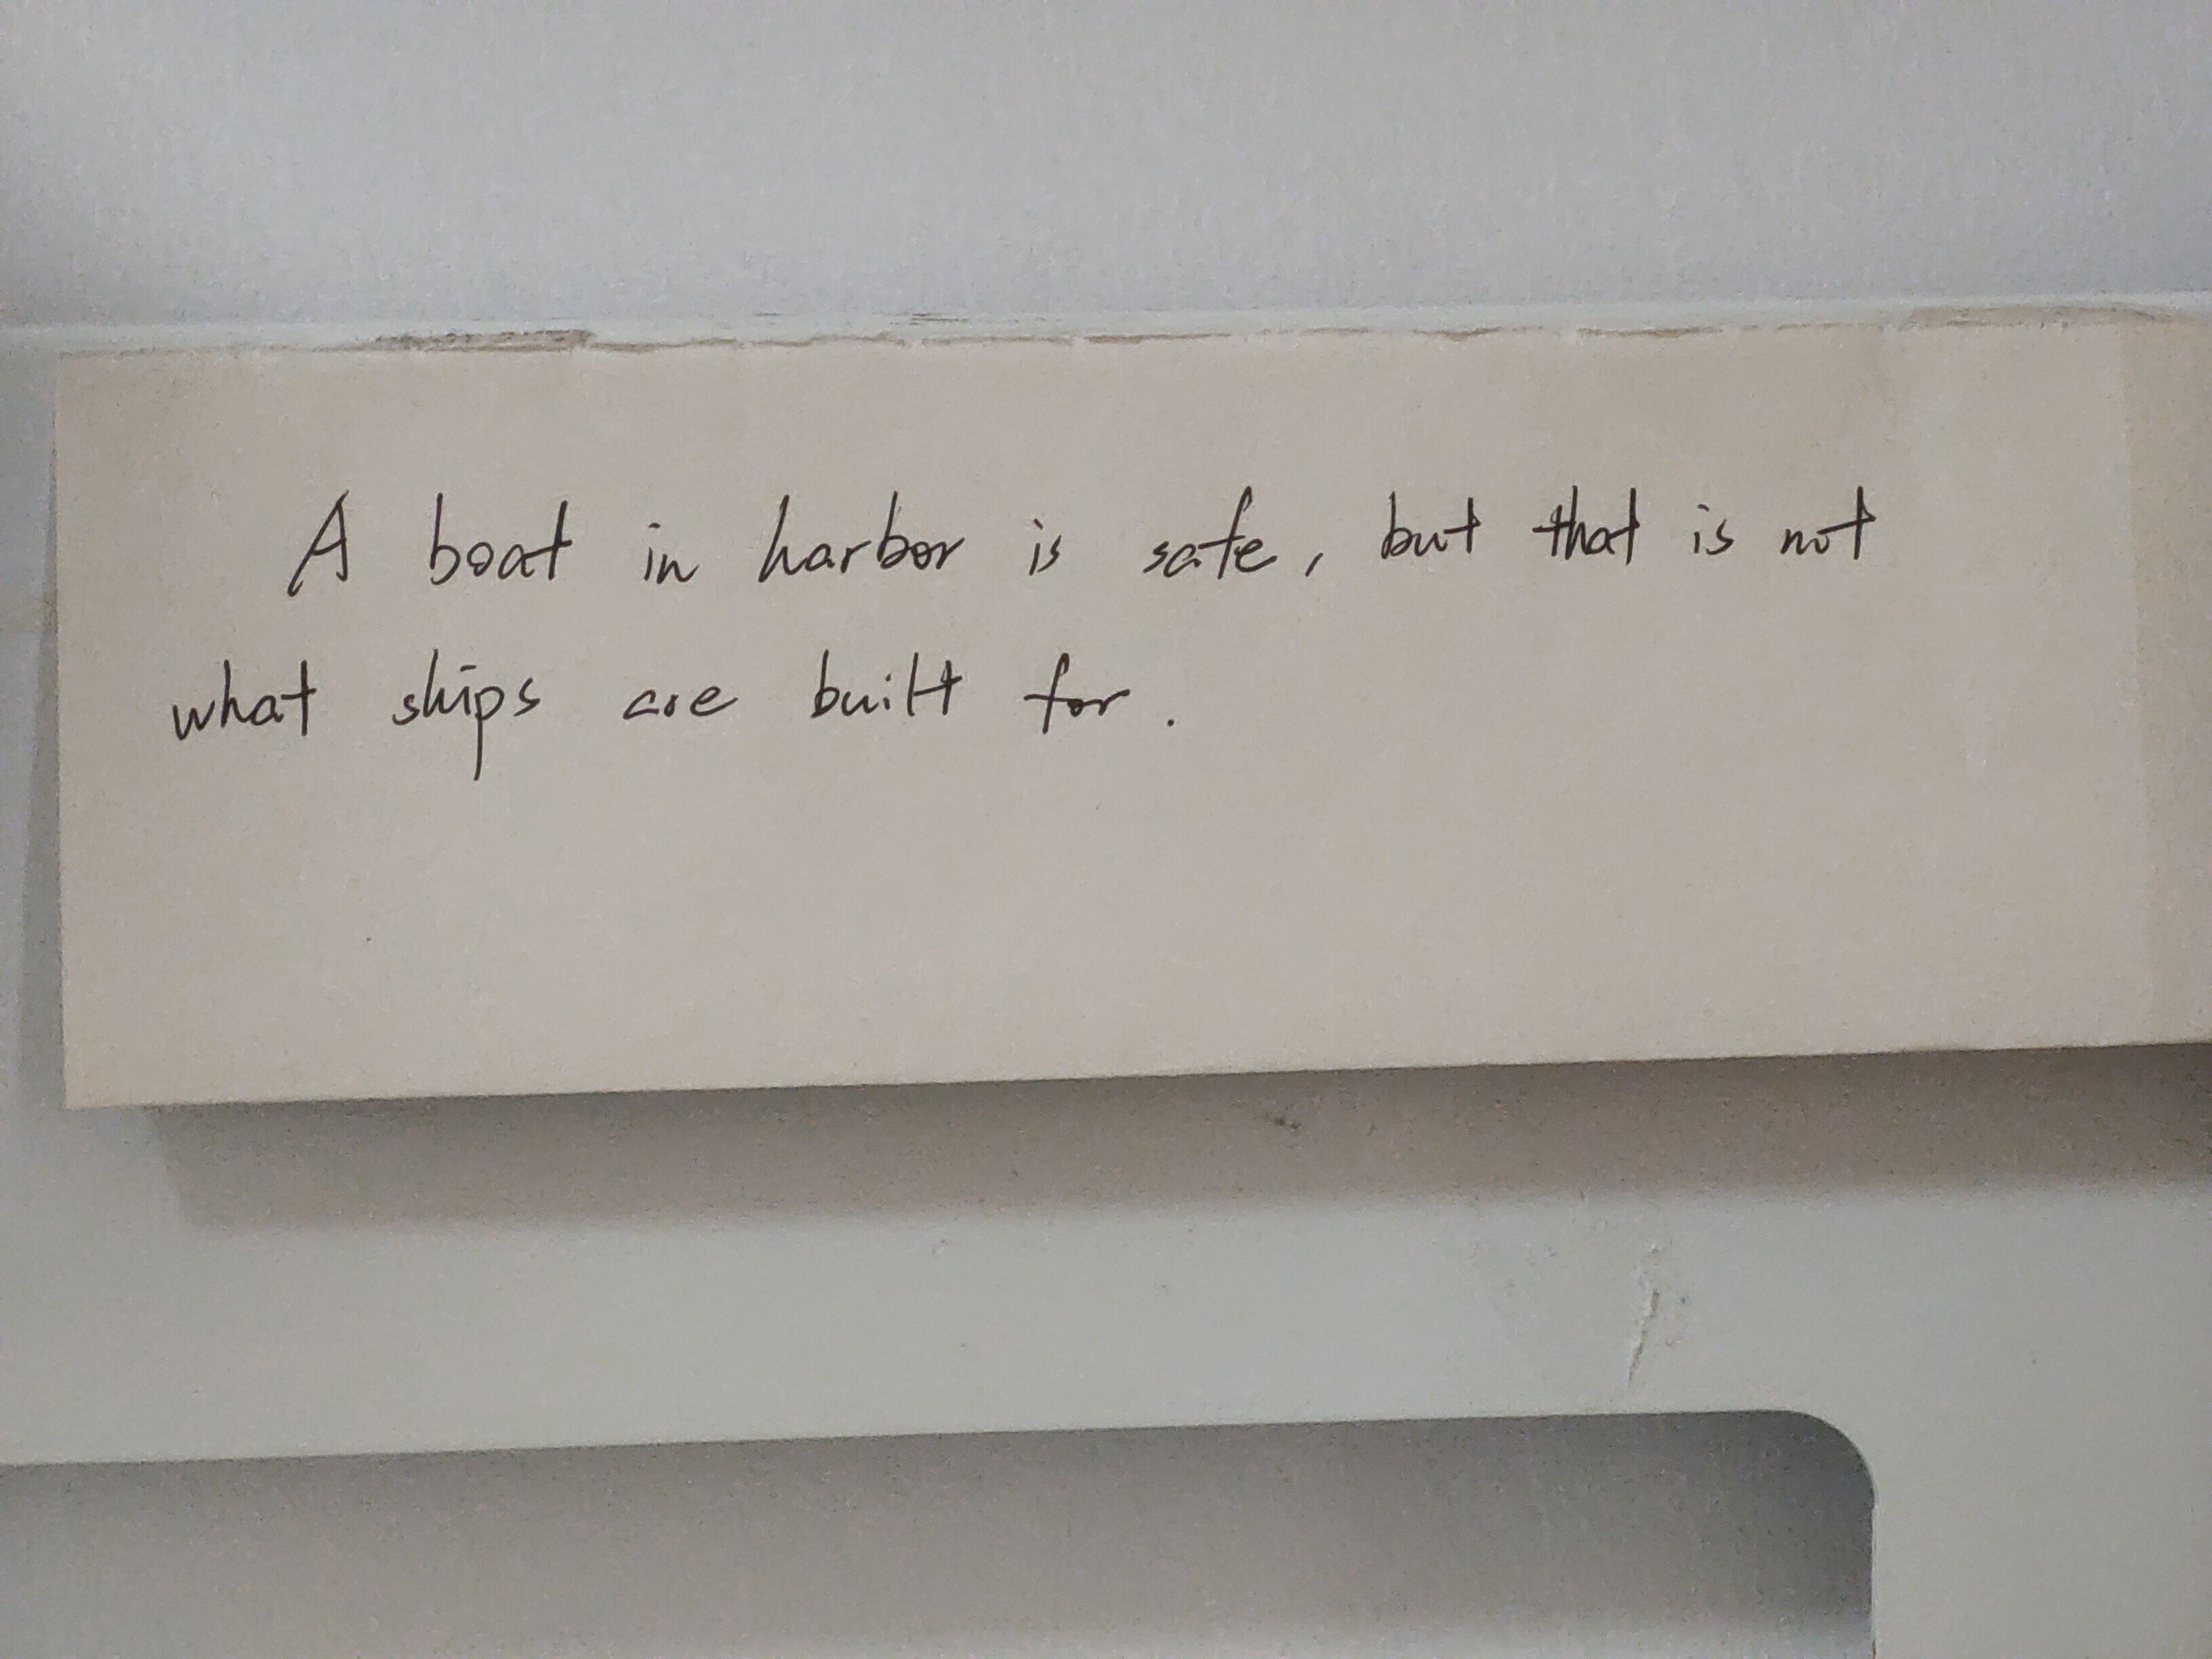 A boat in harbor is safe, but that is not
what ships are built for.